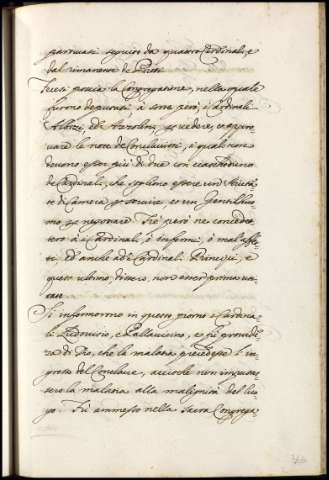 partirsi seguito da quattro Cardinali, e
dal rimanente de Preti.
Fecesi poscia la Congregatione, nella quale
furono deputati, à sorte però, i Cardinali
Albizi, ed Azzolini, per vedere, et appro-
vare le note de Conclavisti, i quali non
devono esser più di due con ciascheduno
de Cardinali, che sogliono essere un
te di Camera, per servire, et un Gentilhuo-
mo per negotiare. Trè però ne concedet-
tero à i Cardinali, ò infermi, ò mal affet-
ti, ed anche ad i Cardinali Principi, e
quest' ultimo, dissero, non esser prima va-
Si infermorono in questi giorni i Cardina-
li Ludovisio, e Pallavicino, e fù providen-
za di Dio, che la malatia precedesse l' in-
gresso del Conclave, acciochè non imputas-
sero la malatia alla malignità del luo-
go. Fù ammesso nella Sacra Congrega-